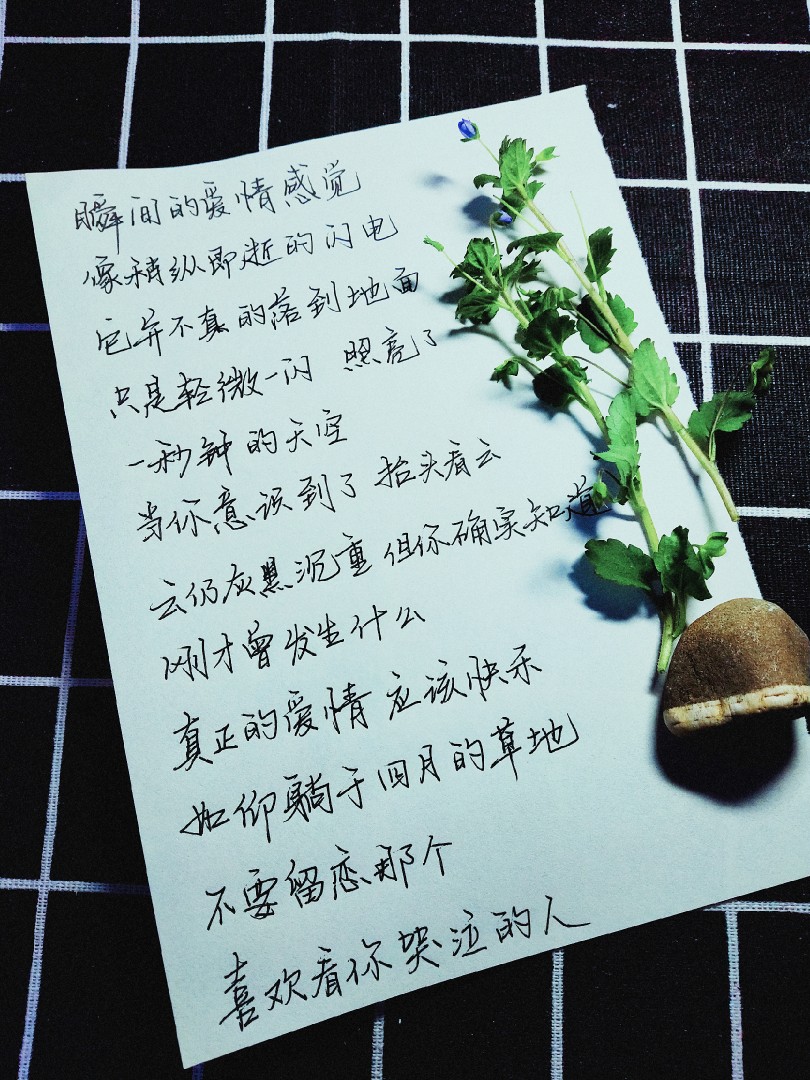 瞬间的爱情感觉
像稍纵即逝的闪电
它并不真的落到地面
只是轻微一闪 照亮了
一秒钟的天空
当你意识到了 抬头看云
云仍灰黑沉重 但你确实知道
刚才曾发生什么
真正的爱情 应该快乐
如仰躺于四月的草地
不要留恋那个
喜欢看你哭泣的人